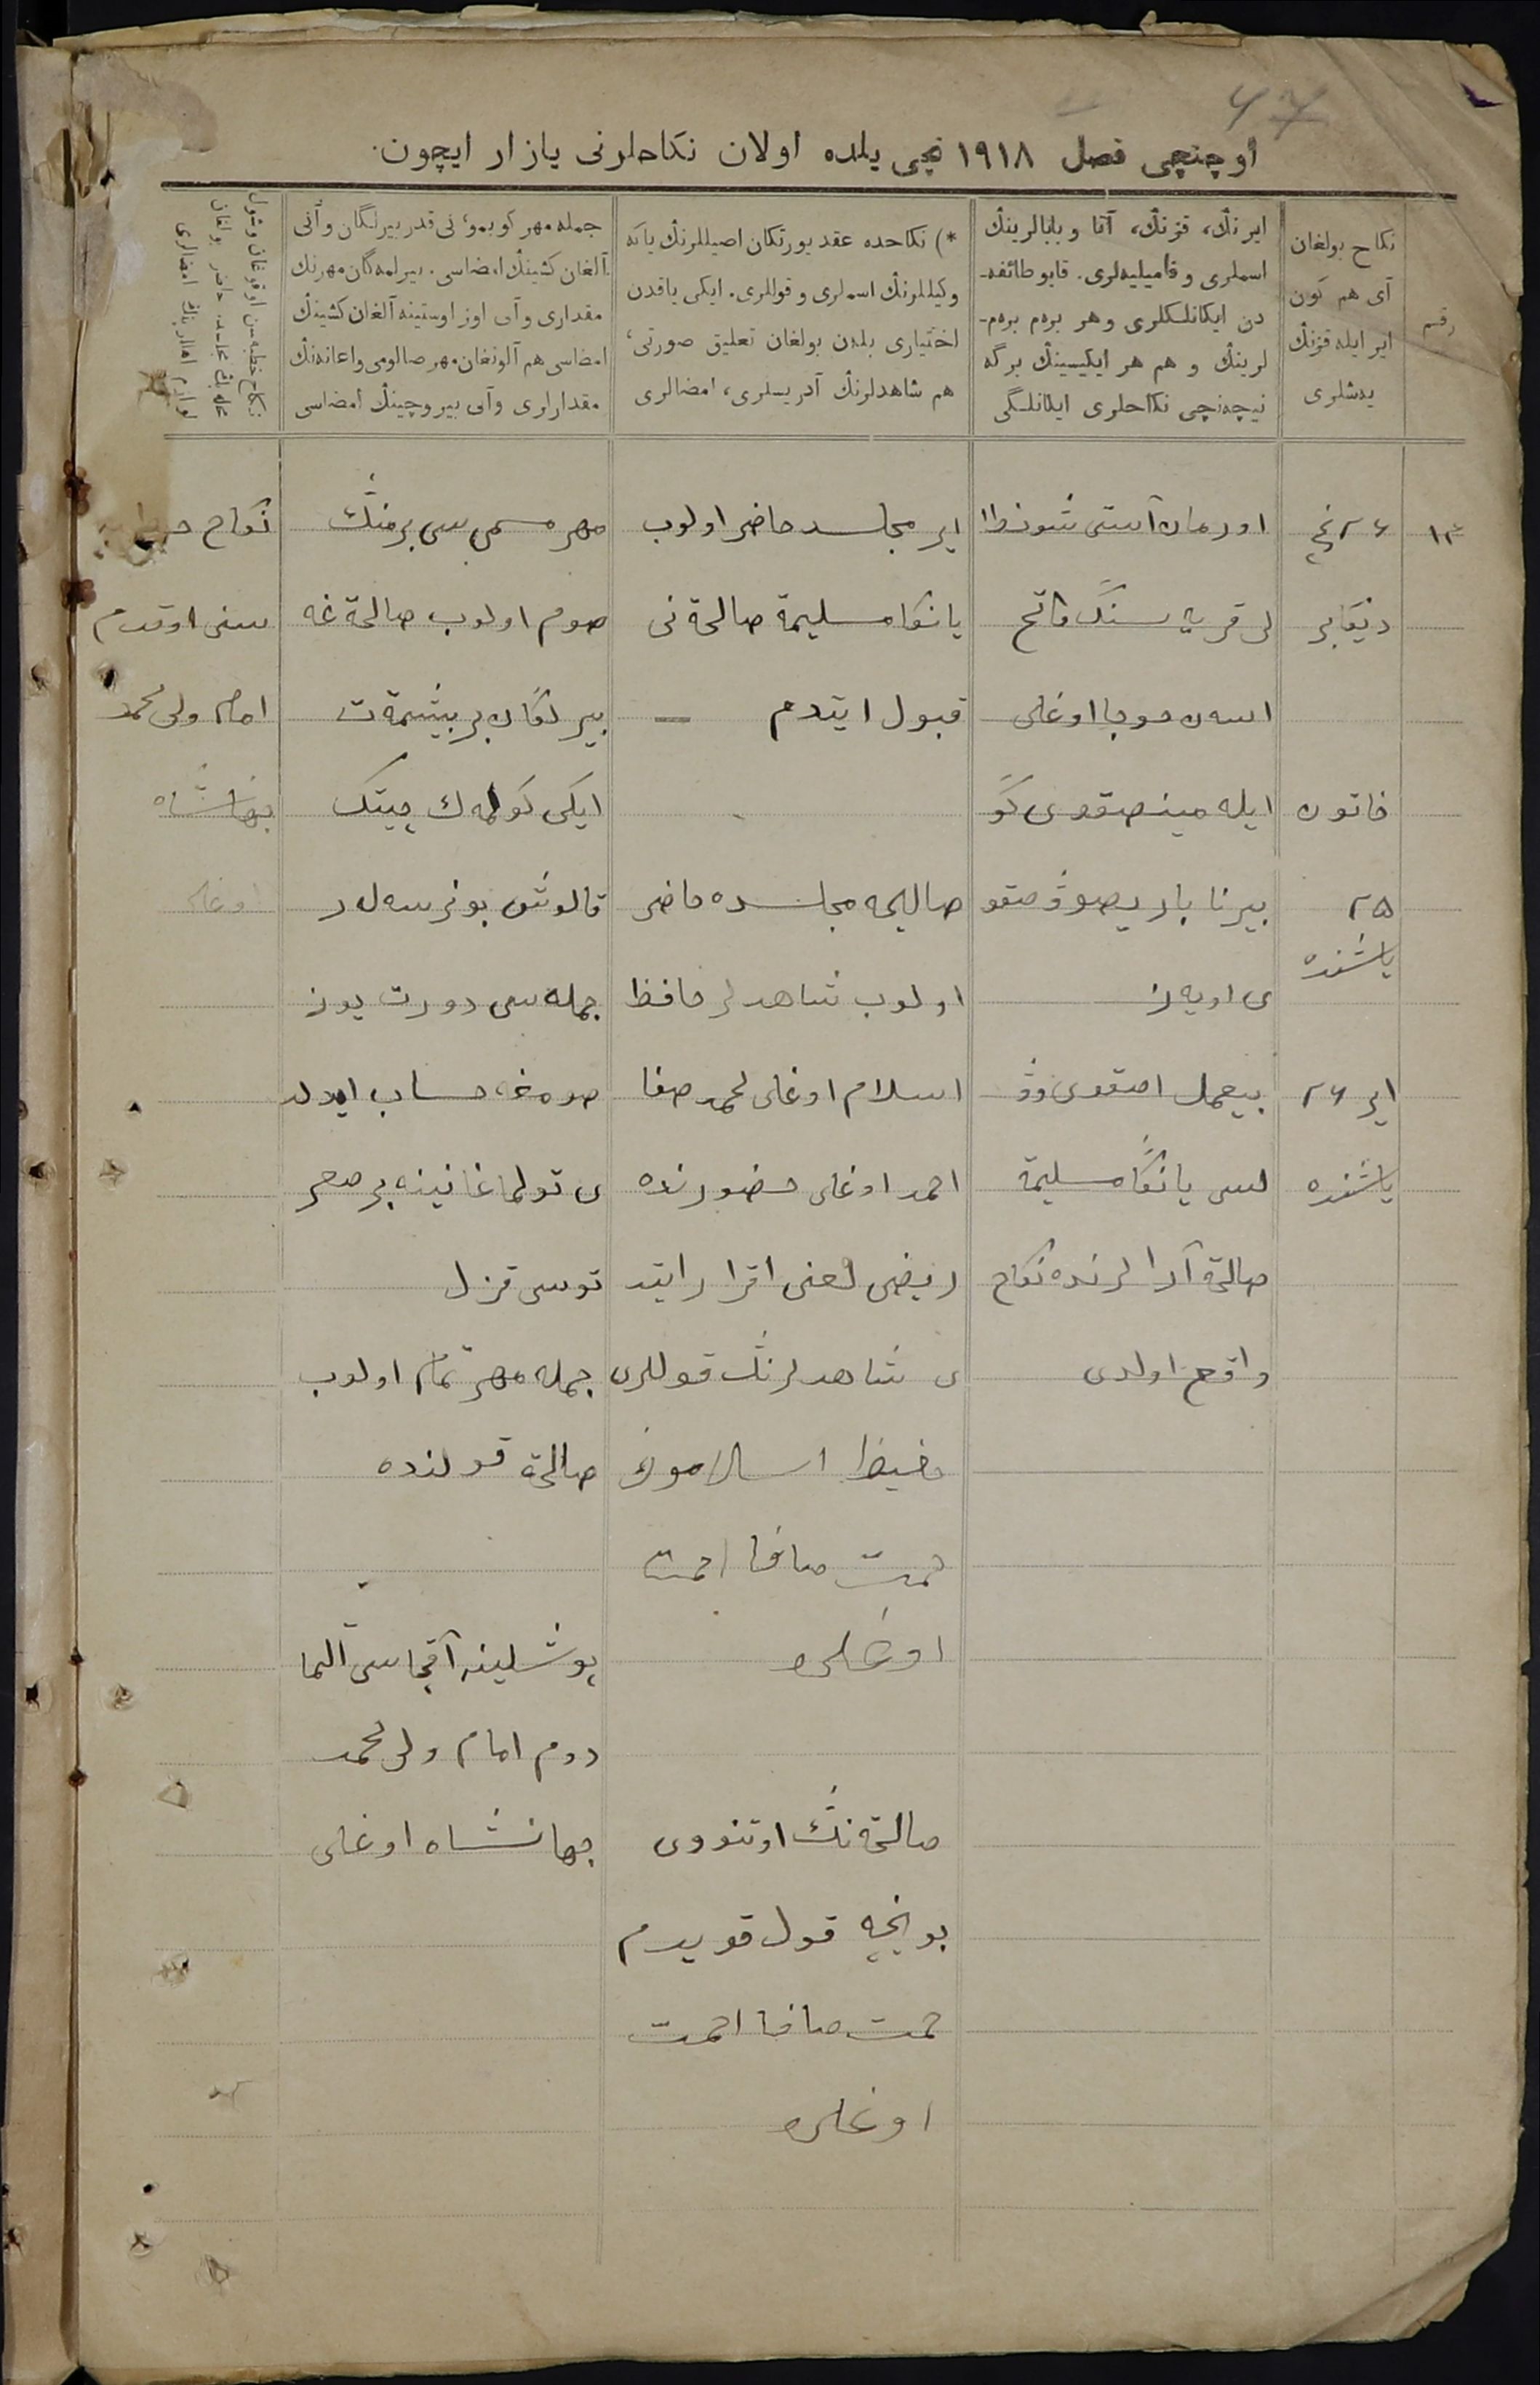 47
اوچنچی فصل ١٩١٨ نچی یلده اولان نکاحلرنی یازار ایچون.
رقم
نکاح بولغان
آی هم کون
ایر ایله قزنڭ
یەشلری
ایرنڭ، قزنڭ، آتا و بابالرینڭ
اسملری و فامیلیەلری. قایو طائفه‌ـ
دن ایکانلکلری وهر برەم برەم‌ـ
لرینڭ و هم هر ایکیسینڭ برگه
نیچەنچی نکاحلری ایکانلگی
*) نکاحده عقد یورتکان اصیللرنڭ یاکه
وکیللرنڭ اسملری و قوللری. ایکی یاقدن
اختیاری بلەن بولغان تعلیق صورتی،
هم شاهدلرنڭ آدریسلری، امضالری
جمله مهر کوبمو، نی قدر بیرلگان وآنی
آلغان کشینڭ امضاسی. بیرلمەگان مهرنڭ
مقداری وآنی اوز اوستینه آلغان کشینڭ
امضاسی هم آلونغان مهر صالومی واعانەنڭ
مقدارلری وآنی بیروچینڭ امضاسی
نکاح خطبەسن اوقوغان وشول
١٣
٢٦ نچی
دیکابر
خاتون
٢٥
یاشنده
ایر ٢٦
یاشنده
اورمان آستی شونطا
لی قریه سنڭ فاتح
ایله مینصفوی کو
ی اویەز
لسی یانکا مسلیمة
صالحة آرالرنده نکاح
واقع اولدی
ایر مجلسده حاضر اولوب
یانکا مسلیمة صالحة نی
قبول ایتدم —
صالیحه مجلسده حاضر
اولوب شاهدلر حافظ
اسلام اوغلی محمد صفا
احمد اوغلی حضورنده
ریضی لعنی اقرار ایتد
ی شاهدلرنڭ قوللری
حفیظ اسلاموف
حمت صافا احمت
اوغلی
صالحة نڭ اوتنووی
بوینچه قول قویدم
حمت صافا احمت
اوغلی
مهر مسمی سی بر منڭ
صوم اولوب صالحة غه
بیرلکان بر بیشمةت
ایکی کولمەك چیتك
قالوش بو نرسەلر
جملەسی دورت یوز
صومغه حساب ایدلد
ی تولماغانینه بر
توسی قزل
جمله مهر تمام اولوب
صالحة قولنده
پوشلینه آقچاسی آلما
دوم امام ولی محمد
جهانشاه اوغلی
نکاح
سنی اوقدم
امام ولی محمد
جهانشاه
اوغلی